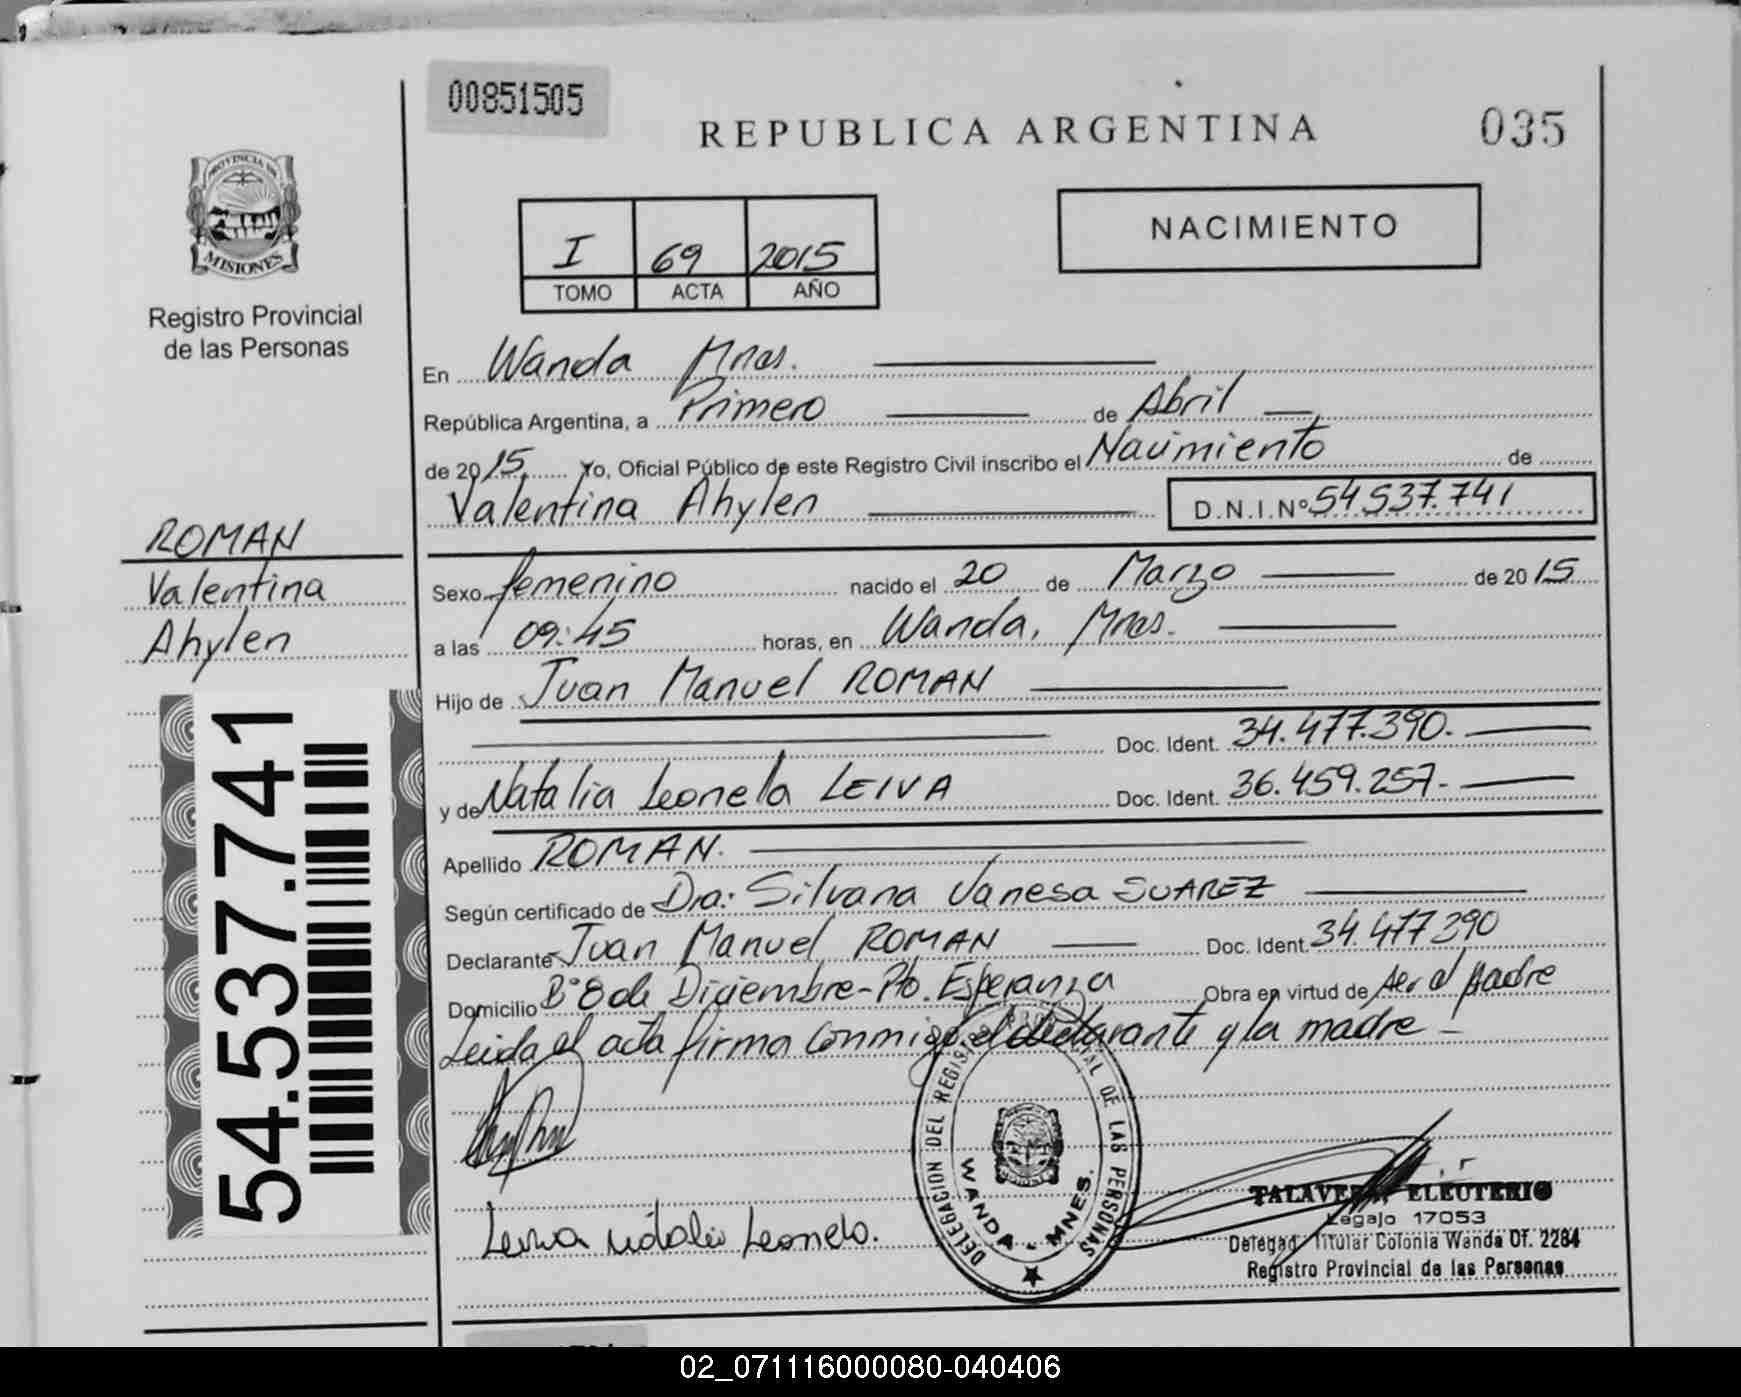 00851505
REPUBLICA ARGENTINA
035
PROVINCIA DE
MISIONES
Registro Provincial
de las Personas
I 69 2015
TOMO ACTA AÑO
NACIMIENTO
En Wanda Mnes.
República Argentina, a Primero de Abril
de 2015 Yo, Oficial Público de este Registro Civil inscribo el Nacimiento de
Valentina Ahylen D.N.I.Nº 54.537.741
ROMAN
Valentina
Ahylen
Sexo femenino nacido el 20 de Marzo de 2015
a las 09:45 horas, en Wanda, Mnes.
Hijo de Juan Manuel ROMAN
Doc. Ident. 34.477.390.
y de Natalia Leonela LEIVA Doc. Ident. 36.459.257.
Apellido ROMAN.
Según certificado de Dra: Silvana Vanesa SUAREZ
Declarante Juan Manuel ROMAN Doc. Ident. 34.477.390
Domicilio Bº 8 de Diciembre - Pto. Esperanza Obra en virtud de ser el padre
Leida el acta firma conmigo el declarante y la madre
54.537.741
DELEGACION DEL REGISTRO PROVINCIAL DE LAS PERSONAS
WANDA - MNES.
Leiva Natalia Leonela.
TALAVERA ELEUTERIO
Legajo 17053
Delegad. Titular Colonia Wanda Of. 2284
Registro Provincial de las Personas
02_071116000080-040406